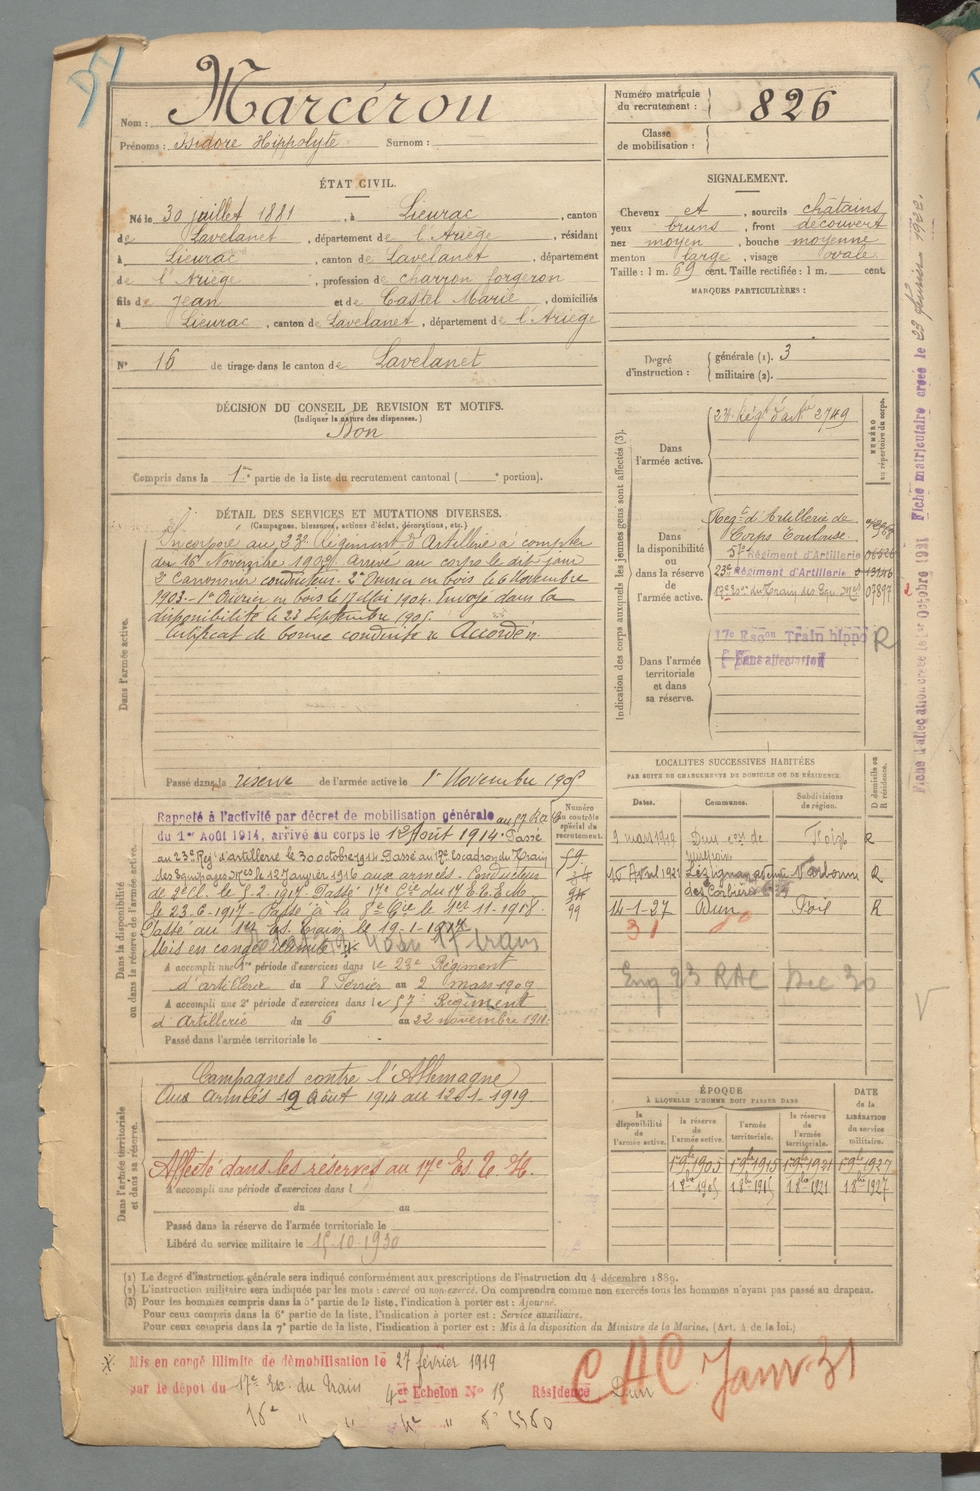 Nom : Marcérou
Prénoms : Isidore Hippolyte Surnom :
Numéro matricule du recrutement : 826
Classe de mobilisation :
ÉTAT CIVIL.
Né le 30 juillet 1881, à Lieurac, canton
de Lavelanet, département de l'Ariège, résidant
à Lieurac, canton de Lavelanet, département
de l'Ariège, profession de charron forgeron
fils de Jean et de Castel Marie, domiciliés
à Lieurac, canton de Lavelanet, département de l'Ariège
N° 16 de tirage dans le canton de Lavelanet
SIGNALEMENT.
Cheveux et, sourcils châtains
yeux bruns, front découvert
nez moyen, bouche moyenne
menton large, visage ovale
Taille : 1 m. 69 cent. Taille rectifiée : 1 m. cent.
MARQUES PARTICULIÈRES :
Degré d'instruction :
générale (1). 3
militaire (2).
DÉCISION DU CONSEIL DE REVISION ET MOTIFS.
(Indiquer la nature des dispenses.)
Bon
Compris dans la 1re partie de la liste du recrutement cantonal ( e portion).
DÉTAIL DES SERVICES ET MUTATIONS DIVERSES.
(Campagnes, blessures, actions d'éclat, décorations, etc.)
Dans l'armée active.
Incorporé au 23e Régiment d'Artillerie à compter
du 16 Novembre 1902. Arrivé au corps le dit jour
2e Canonnier conducteur. 2e Ouvrier en bois le 6 Novembre
1903.- 1er Ouvrier en bois le 17 Mai 1904. Envoyé dans la
disponibilité le 23 Septembre 1905.
Certificat de bonne conduite "Accordé".
Passé dans la réserve de l'armée active le 1er Novembre 1905
Indication des corps auxquels les jeunes gens sont affectés (3).
NUMÉRO au répertoire du corps.
Dans l'armée active.
23e Régt d'Artie 2749
Dans la disponibilité ou dans la réserve de l'armée active.
Régt d'Artillerie de
Corps Toulouse
57e Régiment d'Artillerie
23e Régiment d'Artillerie
17e Eson du Train des Equ. Mres 07897
Dans l'armée territoriale et dans sa réserve.
17e Escon Train hippo R
Sans affectation
Dans la disponibilité ou dans la réserve de l'armée active.
Numéro au contrôle spécial du recrutement.
59
99
Rappelé à l'activité par décret de mobilisation générale au 57 RA
du 1er Août 1914, arrivé au corps le 12 Août 1914. Passé
au 23e Reg. d'artillerie le 30 octobre 1914 Passé au 17e Escadron du Train
des Equipages Mres le 12 Janvier 1916 aux armées. Conducteur
de 2e Cl. le 5-2-1917 Passé 17e Cie du 17 E.T.E.M.
le 23-6-1917 - Passé à la 8e Cie le 1er 11-1918.
Passé au 1er Es. Train le 19-1-
Mis en congé illimité
A accompli une 1re période d'exercices dans le 23e Régiment
d'artillerie du 8 Février au 2 mars 1909
A accompli une 2e période d'exercices dans le 57e Régiment
d'Artillerie du 6 au 22 novembre 1911
Passé dans l'armée territoriale le
LOCALITÉS SUCCESSIVES HABITÉES
PAR SUITE DE CHANGEMENTS DE DOMICILE OU DE RÉSIDENCE.
Dates. Communes. Subdivisions de région. D domicile ou R résidence.
9 mars 1919 Dun Foix R
15 Avril 1921 Lézignan avenue des Corbières Narbonne R
14-1-27 Dun Foix R
31
Eng 23 RAC Dec 30
Dans l'armée territoriale et dans sa réserve.
Campagnes contre l'Allemagne
Aux armées 12 Août 1914 au 12-1-1919
Affecté dans les réserves au 17e Es. T. H.
A accompli une période d'exercices dans l
du au
Passé dans la réserve de l'armée territoriale le
Libéré du service militaire le 15-10-1930
ÉPOQUE
À LAQUELLE L'HOMME DOIT PASSER DANS
DATE de la LIBÉRATION du service militaire.
la disponibilité de l'armée active. la réserve de l'armée active. l'armée territoriale. la réserve de l'armée territoriale.
1 9bre 1905 1 9bre 1915 1 9bre 1921 1 9bre 1927
1 8bre 1905 1 8bre 1915 1 8bre 1921 1 8bre 1927
(1) Le degré d'instruction générale sera indiqué conformément aux prescriptions de l'instruction du 4 décembre 1889.
(2) L'instruction militaire sera indiquée par les mots : exercé ou non exercé. On comprendra comme non exercés tous les hommes n'ayant pas passé au drapeau.
(3) Pour les hommes compris dans la 5e partie de la liste, l'indication à porter est : Ajourné.
Pour ceux compris dans la 6e partie de la liste, l'indication à porter est : Service auxiliaire.
Pour ceux compris dans la 7e partie de la liste, l'indication à porter est : Mis à la disposition du Ministre de la Marine. (Art. 4 de la loi.)
Mis en congé illimité de démobilisation le 27 février 1919
par le dépôt du 17e Esc. du Train 4er Echelon N° 15 Résidence Dun
CAC Janv. 31
Fiche d'affectation créée le 1er Octobre 1931 Fiche matriculaire créée le 23 février 1922.